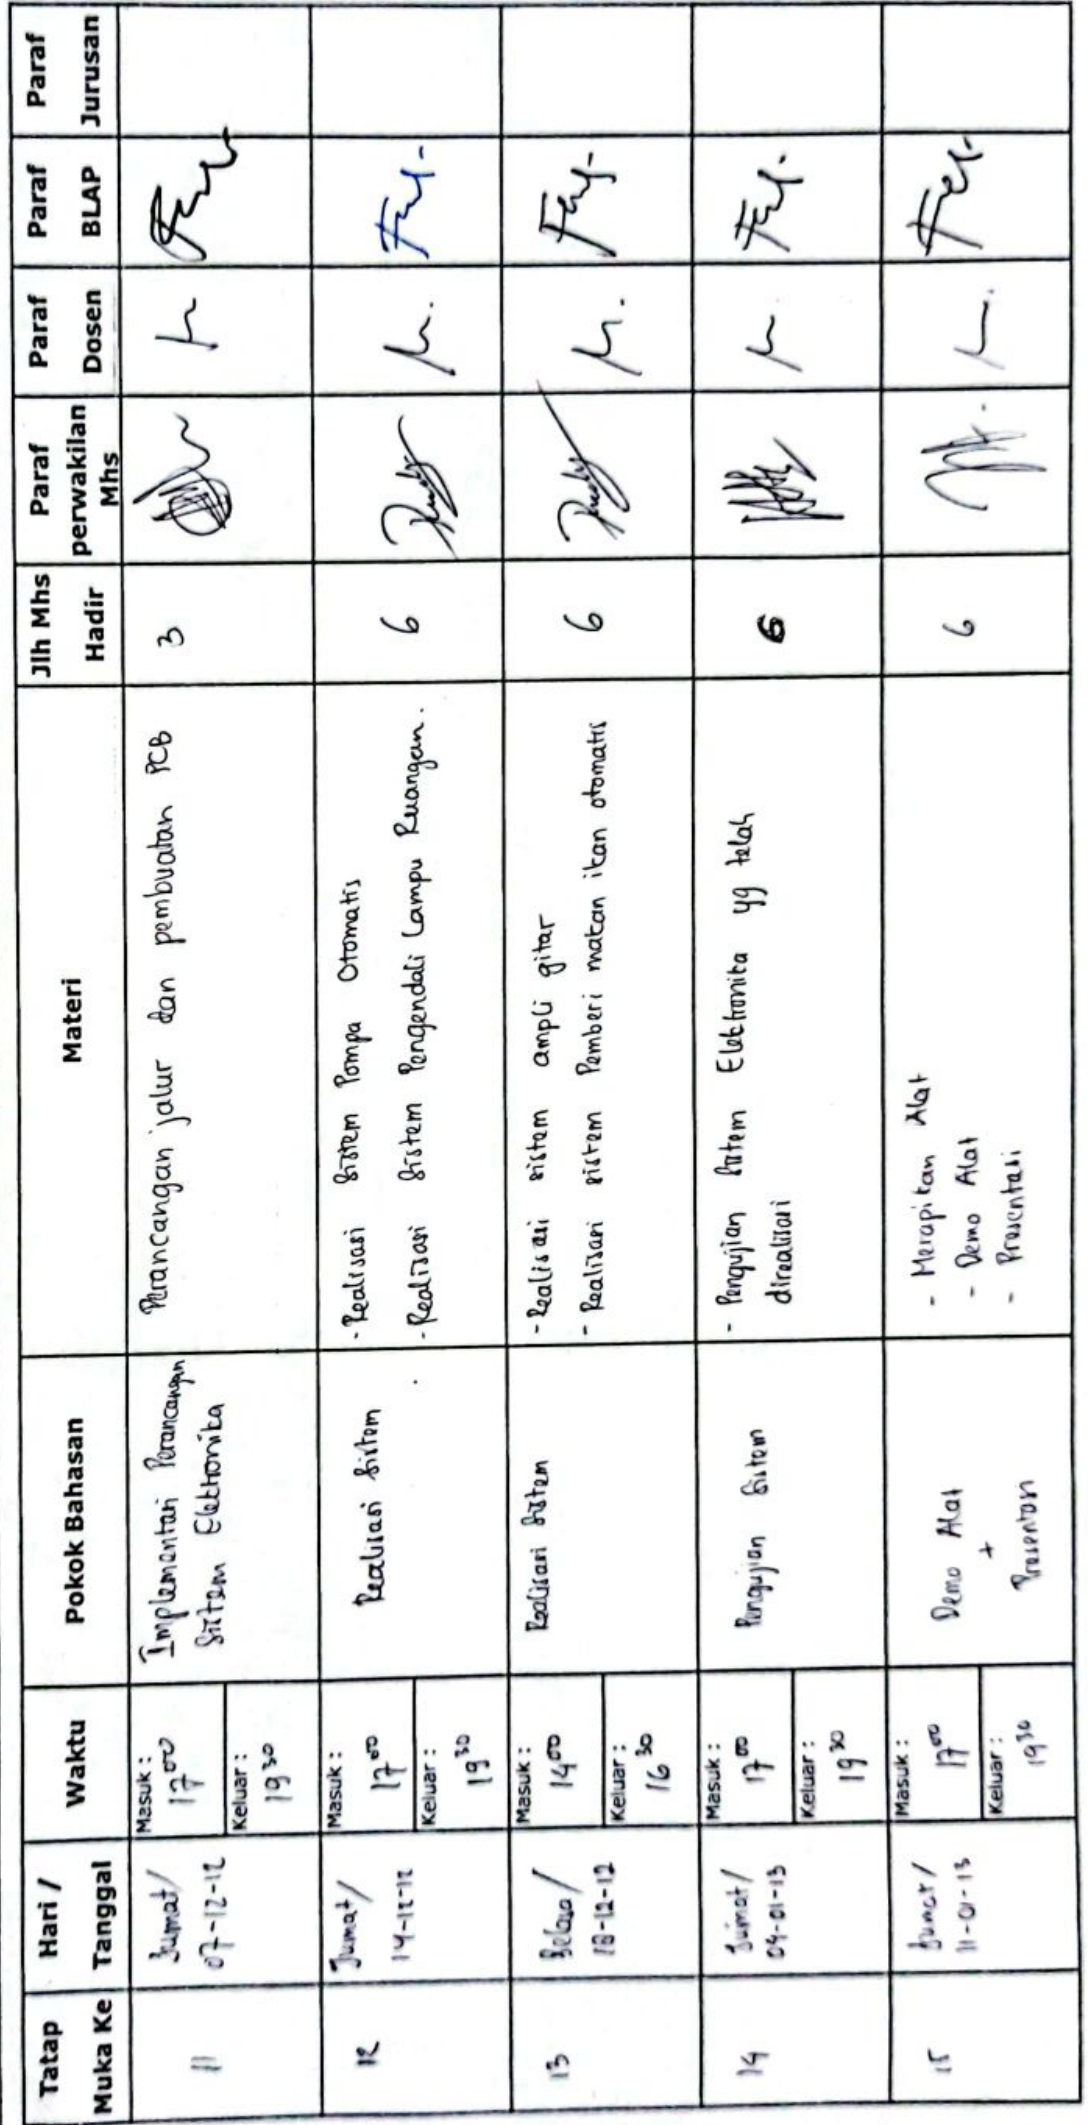 Tatap Muka Ke
Hari / Tanggal
Waktu
Pokok Bahasan
Materi
Jlh Mhs Hadir
Paraf perwakilan Mhs
Paraf Dosen
Paraf BLAP
Paraf Jurusan
11
Jumat/
07-12-12
Masuk :
17 00
Keluar :
19 30
Implementasi Perancangan
Sistem Elektronika
Perancangan jalur dan pembuatan PCB
3
12
Jumat/
14-12-12
Masuk :
17 00
Keluar :
19 30
Realisasi Sistem
- Realisasi Sistem Pompa Otomatis
- Realisasi Sistem Pengendali Lampu Ruangan.
6
13
Selasa/
18-12-12
Masuk :
14 00
Keluar :
16 30
Realisasi Sistem
- Realisasi sistem ampli gitar
- Realisasi sistem Pemberi makan ikan otomatis
6
14
Jumat/
04-01-13
Masuk :
17 00
Keluar :
19 30
Pengujian Sistem
- Pengujian Sistem Elektronika yg telah
direalisasi
6
15
Jumat/
11-01-13
Masuk :
17 00
Keluar :
19 30
Demo Alat
+
Presentasi
- Merapikan Alat
- Demo Alat
- Presentasi
6